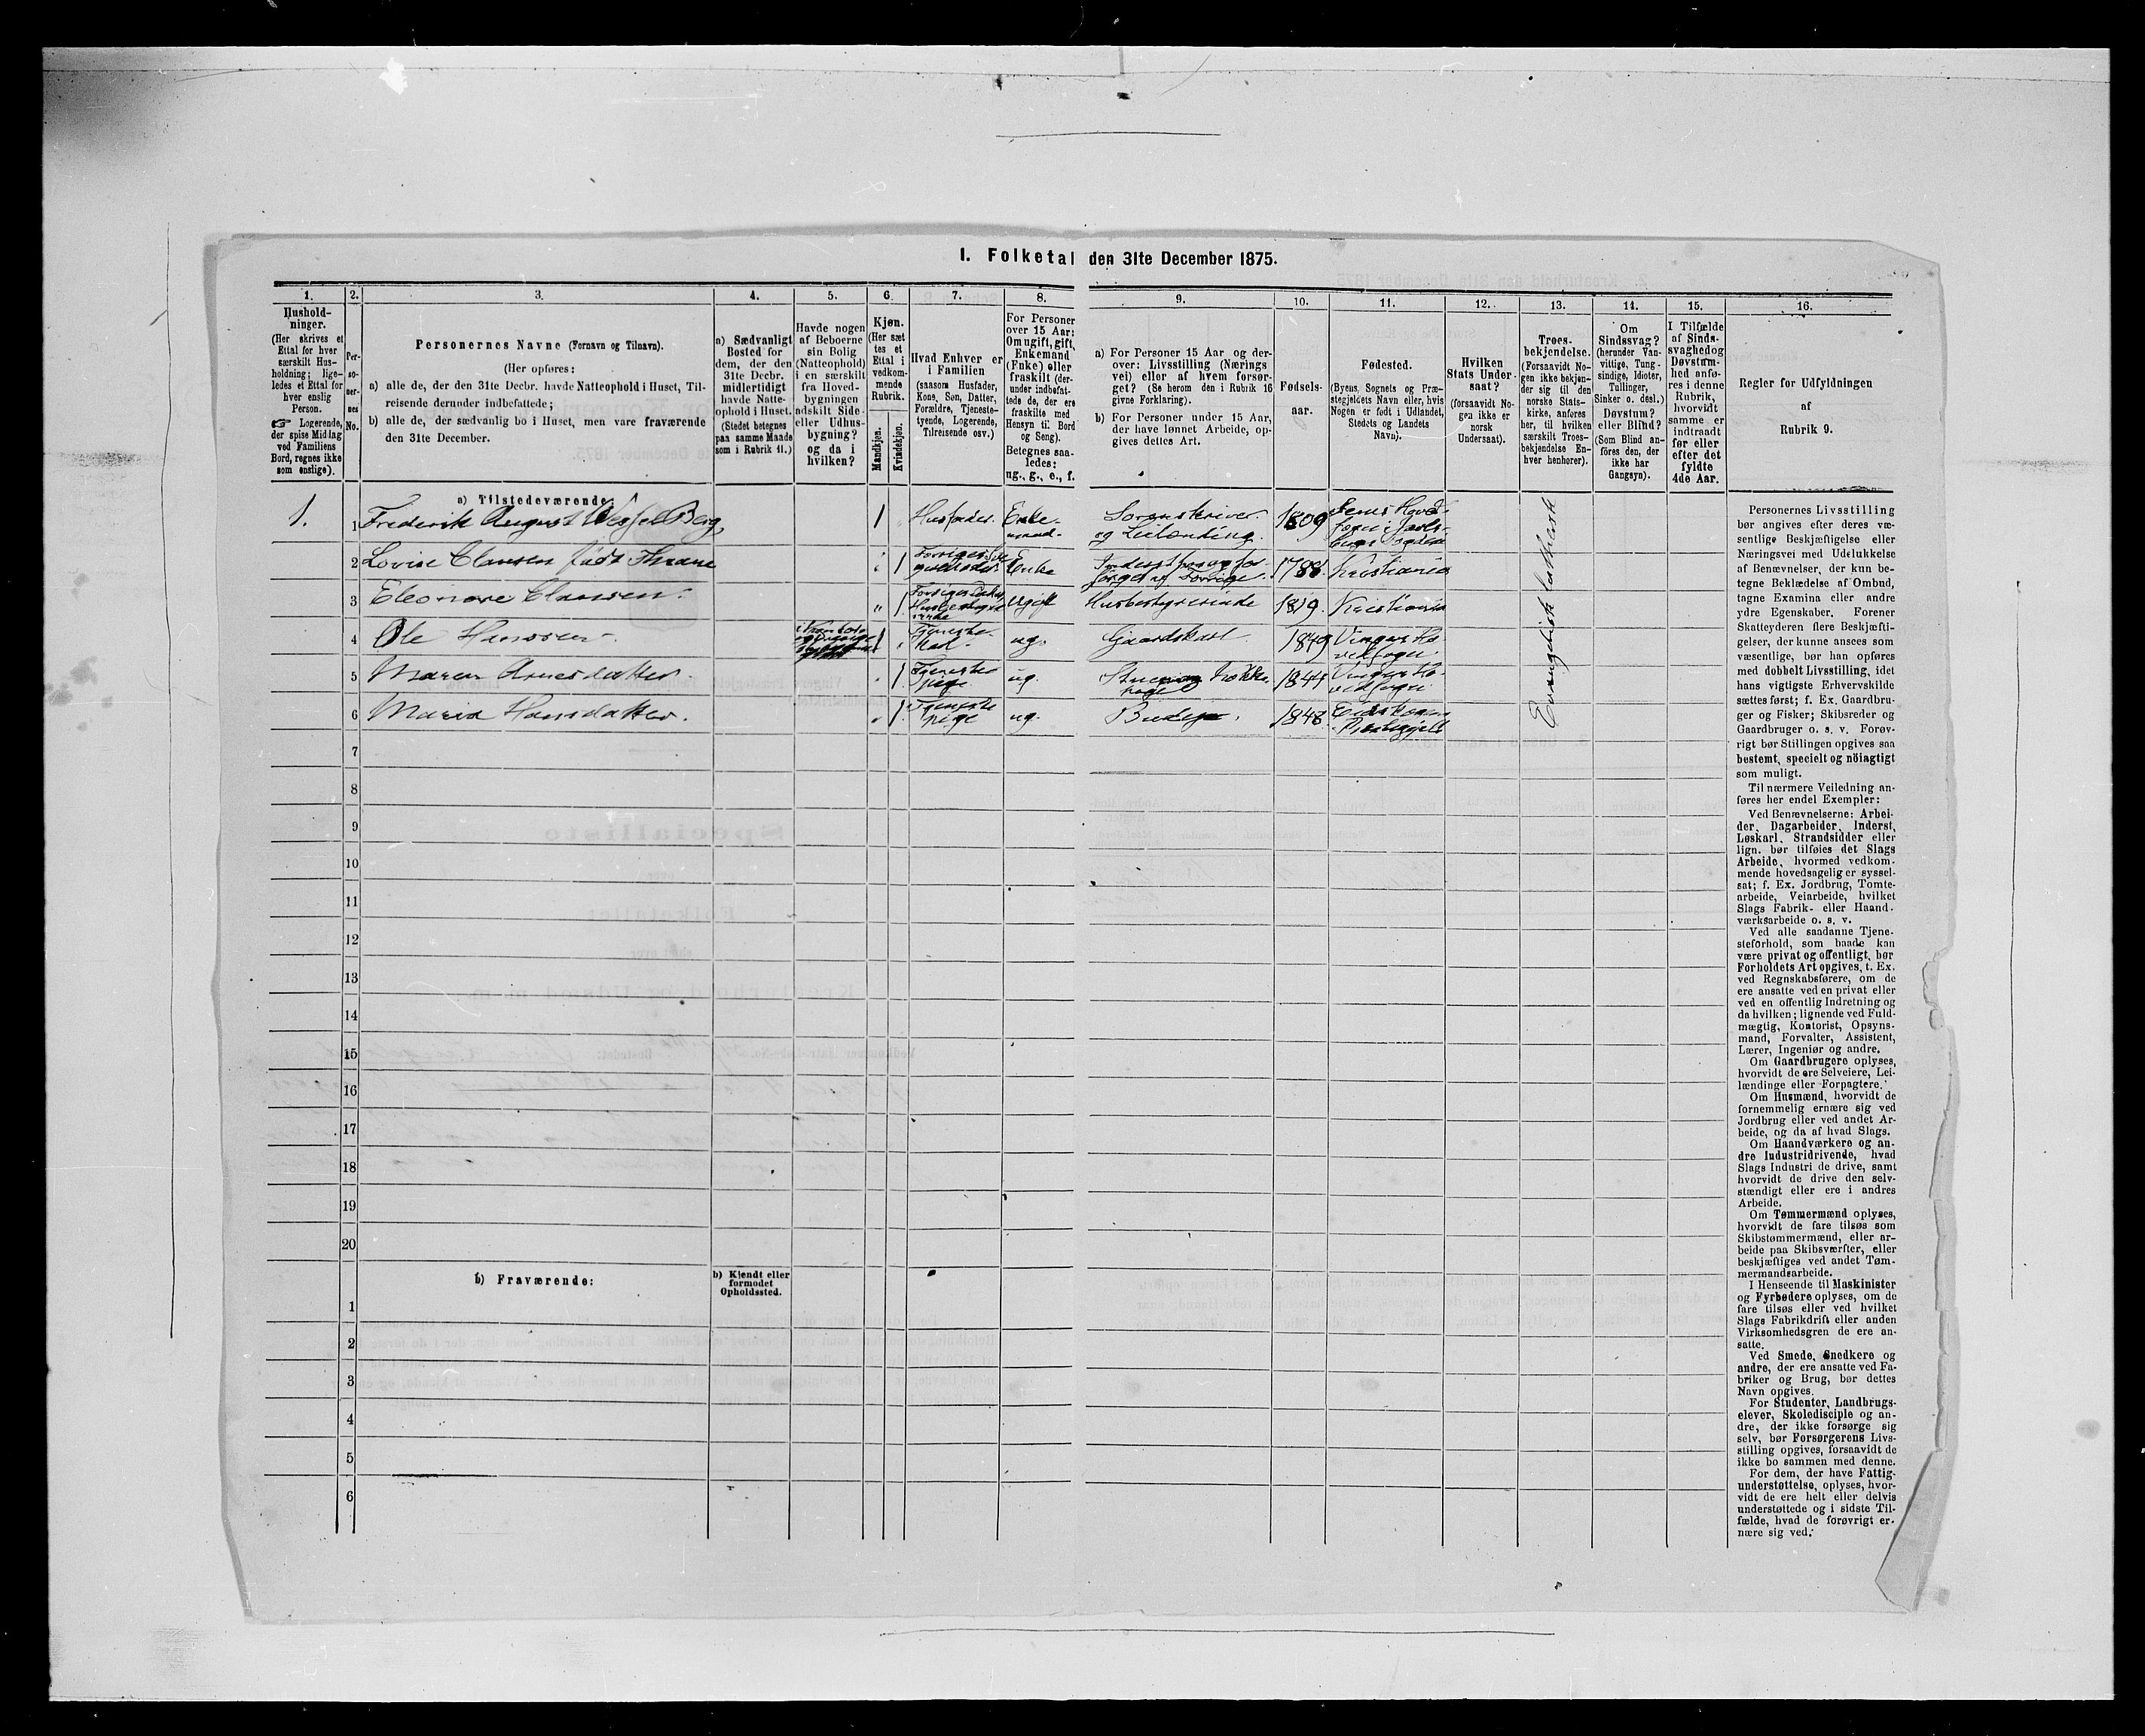 1. Folketal den 31te December 1875.
1.
Hushold-
ninger.
(Her skrives et
Ettal for hver
særskilt Hus-
holdning; lige-
ledes et Ettal for
hver enslig
Person.
☞ Logerende,
der spise Middag
ved Familiens
Bord, regnes ikke
som enslige).
2.
Per-
so-
ner-
nes
No.
3.
Personernes Navne (Fornavn og Tilnavn).
(Her opføres:
a) alle de, der den 31te Decbr. havde Natteophold i Huset, Til-
reisende derunder indbefattede;
b) alle de, der sædvanlig bo i Huset, men vare fraværende
den 31te December.
4.
a) Sædvanligt
Bosted for
dem, der den
31te Decbr.
midlertidigt
havde Natte-
ophold i Huset.
(Stedet betegnes
paa samme Maade
som i Rubrik 11.)
5.
Havde nogen
af Beboerne
sin Bolig
(Natteophold)
i en særskilt
fra Hoved-
bygningen
adskilt Side-
eller Udhus-
bygning?
og da i
hvilken?
6.
Kjøn.
(Her sæt
tes et
Ettal i
vedkom-
mende
Rubrik.
Mandkjøn.
Kvindekjøn.
7.
Hvad Enhver er
i Familien
(saasom Husfader,
Kone, Søn, Datter,
Forældre, Tjeneste-
tyende, Logerende,
Tilreisende osv.)
8.
For Personer
over 15 Aar:
Om ugift, gift,
Enkemand
(Enke) eller
fraskilt (der-
under indbefat-
tede de, der ere
fraskilte med
Hensyn til Bord
og Seng).
Betegnes saa-
ledes:
ug., g., e., f.
9.
a) For Personer 15 Aar og der-
over: Livsstilling (Nærings
vei) eller af hvem forsør-
get (Se herom den i Rubrik 16
givne Forklaring).
b) For Personer under 15 Aar,
der have lønnet Arbeide, op-
gives dettes Art.
10.
Fødsels-
aar.
11.
Fødested.
(Byens, Sognets og Præ-
stegjeldets Navn eller, hvis
Nogen er født i Udlandet,
Stedets og Landets
Navn).
12.
Hvilken
Stats Under-
saat?
(forsaavidt No-
gen ikke er
norsk
Undersaat).
13.
Troes-
bekjendelse.
(Forsaavidt No-
gen ikke bekjen-
der sig til den
norske Stats-
kirke, anføres
her, til hvilken
særskilt Troes-
bekjendelse En-
hver henhører).
14.
Om
Sindssvag?
(herunder Van-
vittige, Tung-
sindige, Idioter,
Tullinger,
Sinker o. desl.)
Døvstum?
eller Blind?
(Som Blind an-
føres den, der
ikke har
Gangsyn).
15.
I Tilfælde
af Sinds-
svaghed og
Døvstum-
hed anfø-
res i denne
Rubrik,
hvorvidt
samme er
indtraadt
før eller
efter det
fyldte
4de Aar.
16.
Regler for Udfyldningen
af
Rubrik 9.
a) Tilstedeværende:
1. 1 Frederik August Wessel Berg, 1 Husfader. Enke-mand. Sorenskriver og Leilænding. 1809
2 Lovise Clausen født Thrane 1 Enke 1788 Kristiania
3 Eleonore Clausen. 1 Ugift Husbestyrerinde 1819. Kristiania
4 Ole Hansen. 1 Tjeneste- ug. Gaardskarl. 1849 Vinger Ho-
vedsogn
5 Maren Arnesdatter. 1 Tjeneste
pige ug. Vinger Ho-
vedsogn
6 Maria Hansdatter. 1 Tjeneste
pige ug. Budeje. 1848 Eidskogen
Præstegjeld
Evangelisk luthersk
7
8
9
10
11
12
13
14
15
16
17
18
19
20
b) Fraværende:
b) Kjendt eller
formodet
Opholdssted.
1
2
3
4
5
6
Personernes Livsstilling
bør angives efter deres væ-
sentlige Beskjæftigelse eller
Næringsvei med Udelukkelse
af Benævnelser, der kun be-
tegne Beklædelse af Ombud,
tagne Examina eller andre
ydre Egenskaber. Forener
Skatteyderen flere Beskjæfti-
gelser, der kunne ansees som
væsentlige, bør han opføres
med dobbelt Livsstilling, idet
hans vigtigste Erhvervskilde
sættes først; f. Ex. Gaardbru-
ger og Fisker; Skibsreder og
Gaardbruger o. s. v. Forøv-
rigt bør Stillingen opgives saa
bestemt, specielt og nöiagtigt
som muligt.
Til nærmere Veiledning an-
føres her endel Exempler:
Ved Benævnelserne: Arbei-
der, Dagarbeider, Inderst,
Løskarl, Strandsidder eller
lign. bør tilføies det Slags
Arbeide, hvormed vedkom-
mende hovedsagelig er syssel-
sat; f. Ex. Jordbrug, Tomte-
arbeide, Veiarbeide, hvilket
Slags Fabrik- eller Haand-
værksarbeide o. s. v.
Ved alle saadanne Tjene-
steforhold, som baade kan
være privat og offentligt, bør
Forholdets Art opgives, t. Ex.
ved Regnskabsførere, om de
ere ansatte ved en privat eller
ved en offentlig Indretning og
da hvilken; lignende ved Fuld-
mægtig, Kontorist, Opsyns-
mand, Forvalter, Assistent,
Lærer, Ingeniør og andre.
Om Gaardbrugere oplyses,
hvorvidt de ere Selveiere, Lei-
lændinge eller Forpagtere.
Om Husmænd, hvorvidt de
fornemmelig ernære sig ved
Jordbrug eller ved andet Ar-
beide, og da af hvad Slags.
Om Haandværkere og an-
dre Industridrivende, hvad
Slags Industri de drive, samt
hvorvidt de drive den selv-
stændigt eller ere i andres
Arbeide.
Om Tømmermænd oplyses,
hvorvidt de fare tilsøs som
Skibstømmermænd, eller ar-
beide paa Skibsværfter, eller
beskjæftiges ved andet Tøm-
mermandsarbeide.
I Henseende til Maskinister
og Fyrbødere oplyses, om de
fare tilsøs eller ved hvilket
Slags Fabrikdrift eller anden
Virksomhedsgren de ere an-
satte.
Ved Smede, Snedkere og
andre, der ere ansatte ved Fa-
briker og Brug, bør dettes
Navn opgives.
For Studenter, Landbrugs-
elever, Skoledisciple og an-
dre, der ikke forsørge sig
selv, bør Forsørgerens Livs-
stilling opgives, forsaavidt de
ikke bo sammen med denne.
For dem, der have Fattig-
understøttelse, oplyses, hvor-
vidt de ere helt eller delvis
understøttede og i sidste Til-
fælde, hvad de forøvrigt er-
nære sig ved.